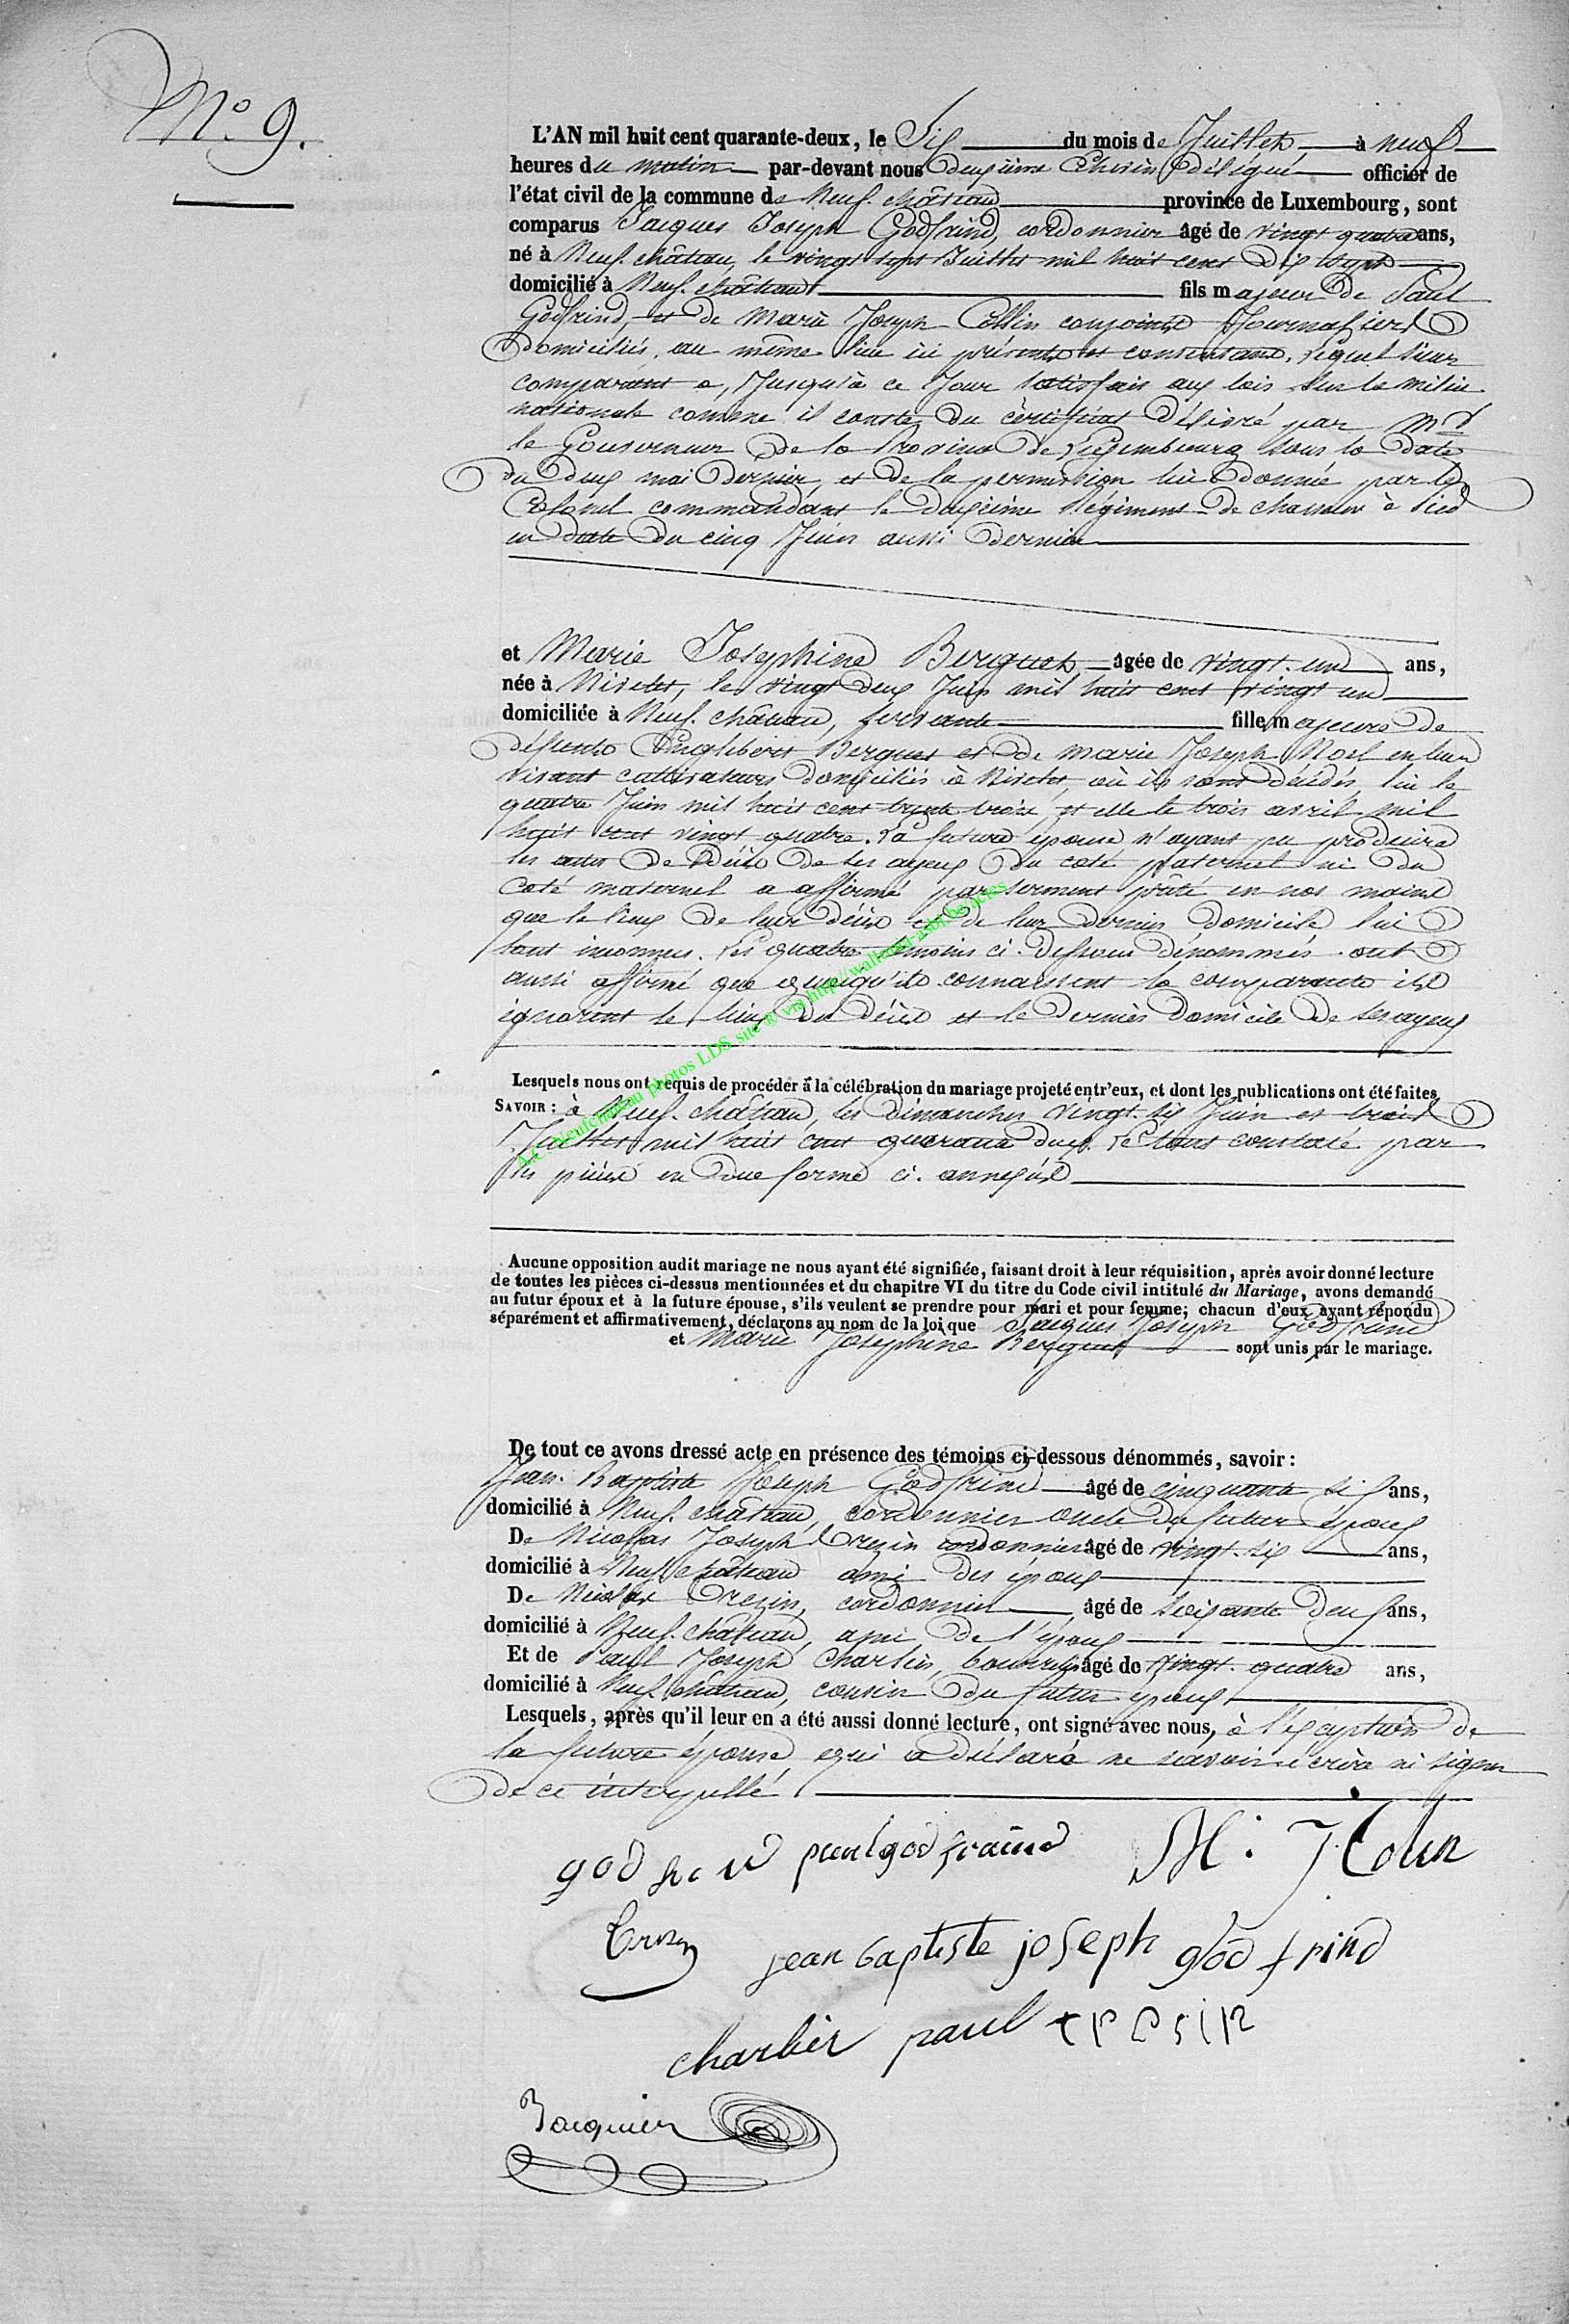 N.° 9.
L'AN mil huit cent quarante-deux, le Six du mois de Juillet, à neuf
heures du matin par-devant nous deuxième Echevin Délégué officier de
l'état civil de la commune de Neuf-château province de Luxembourg, sont
comparus Jacques Joseph Godfrind, cordonnier âgé de vingt quatre ans,
né à Neuf-château, le vingt sept Juillet mil huit cent dix sept
domicilié à Neuf-château fils majeur de Paul
Godfrind, et de Marie Joseph Collin conjoints Journaliers
domiciliés, au même lieu ici présents et consentans, lequel sieur
comparant a, Jusqu'à ce Jour satisfait aux lois sur la milice
nationale comme il conste du certificat délivré par Mr
le Gouverneur de la Province de Luxembourg sous la date
du deux mai dernier, et de la permission lui donnée par le
Colonel commandant le deuxième Régiment de chasseurs à Pied
en date du cinq Juin aussi dernier
et Marie Josephine Berguet, âgée de vingt-un ans,
née à Nivelet, le vingt deux Juin mil huit cent vingt un
domiciliée à Neuf-château, servante fille majeure de
défunts Englebert Berguet et de Marie Joseph Noel en leur
vivant cultivateurs domiciliés à Nivelet, où ils sont décédés, lui le
quatre Juin mil huit cent trente trois, et elle le trois avril mil
huit cent vingt quatre. La future épouse n'ayant pu produire
les actes de décès de ses ayeux du coté paternel ni du
coté maternel a affirmé par serment prêté en nos mains
que le lieux de leur décès et de leur dernier domicile lui
sont inconnus. Les quatre témoins ci-dessous dénommés ont
aussi affirmé que quoiqu'ils connaissent la comparante ils
ignorent le lieux du décès et le dernier domicile de ses ayeux
Lesquels nous ont requis de procéder à la célébration du mariage projeté entr'eux, et dont les publications ont été faites,
SAVOIR : à Neuf-château, les dimanches vingt-six Juin et trois
Juillet mil huit cent quarante deux. Le tout constaté par
les pièces en due forme ci-annexées
Aucune opposition audit mariage ne nous ayant été signifiée, faisant droit à leur réquisition, après avoir donné lecture
de toutes les pièces ci-dessus mentionnées et du chapitre VI du titre du Code civil intitulé du Mariage, avons demandé
au futur époux et à la future épouse, s'ils veulent se prendre pour mari et pour femme; chacun d'eux ayant répondu
séparément et affirmativement, déclarons au nom de la loi que Jacques Joseph Godfrind
et Marie Josephine Berguet sont unis par le mariage.
De tout ce avons dressé acte en présence des témoins ci-dessous dénommés, savoir :
Jean-Baptiste Joseph Godfrind âgé de cinquante six ans,
domicilié à Neuf-château, cordonnier oncle du futur époux
De Nicolas Joseph Crezin cordonnier âgé de vingt-six ans,
domicilié à Neufchateau ami des époux
De Nicolas Crezin, cordonnier âgé de soixante deux ans,
domicilié à Neuf-château, ami de l'époux
Et de Paul Joseph Charlier, âgé de vingt-quatre ans,
domicilié à Neuf-château, cousin du futur époux
Lesquels, après qu'il leur en a été aussi donné lecture, ont signé avec nous, à l'exception de
la future épouse, qui a déclaré ne savoir écrire ni signer
de ce interpellé
godfrind paulgodfraind M. J Colin
jean baptiste joseph godfrind
charlier paul
Jacquier
A.C. Neufchâteau photos LDS site © via http://wallonia-asbl.be/actes